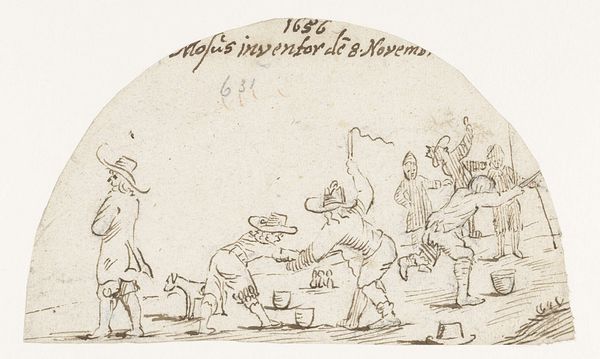 1656
Mosus inventor dē 8. Novemb.
631